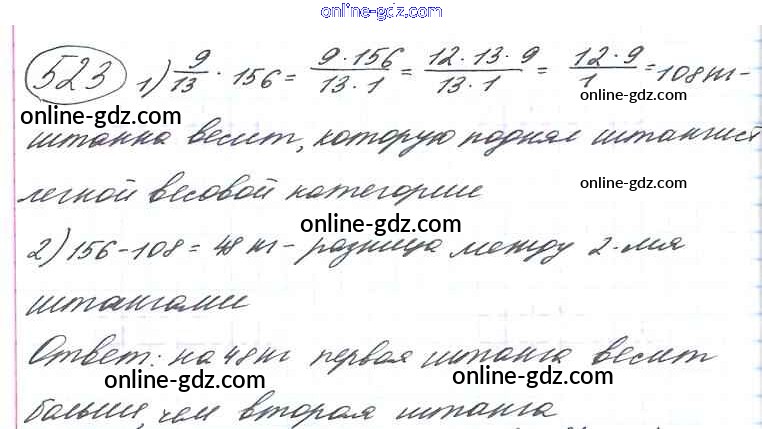 online-gdz.com
523 1) 9/13 · 156 = 9·156/13·1 = 12·13·9/13·1 = 12·9/1 = 108 кг -
online-gdz.com
online-gdz.com
штанга весит, которую поднял штангист
легкой весовой категории
online-gdz.com
online-gdz.com
2) 156-108 = 48 кг - разница между 2-мя
штангами
Ответ: на 48 кг первая штанга весит
online-gdz.com
online-gdz.com
больше, чем вторая штанга